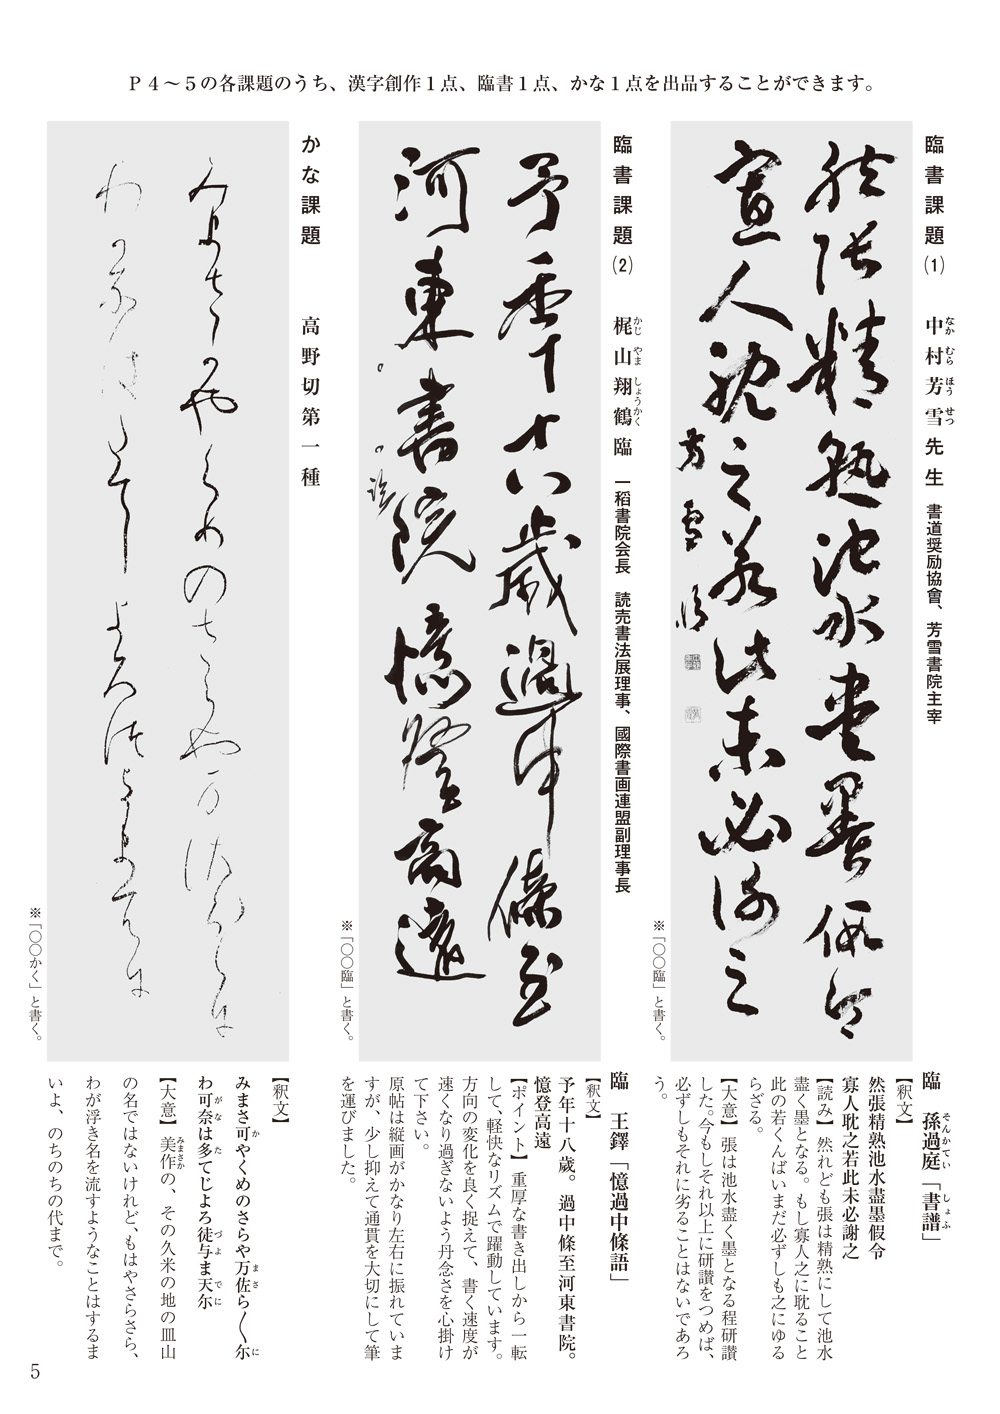 Ｐ４～５の各課題のうち、漢字創作１点、臨書１点、かな１点を出品することができます。
臨書課題(1) 中村芳雪先生 書道奨励協會、芳雪書院主宰
なか むら ほう せつ
然張精熟池水盡墨假令
寡人耽之若此未必謝之
芳雪臨
※「〇〇臨」と書く。
臨 孫過庭「書譜」
そんかてい しょふ
【釈文】
然張精熟池水盡墨假令
寡人耽之若此未必謝之
【読み】然れども張は精熟にして池水
盡く墨となる。もし寡人之に耽ること
此の若くんばいまだ必ずしも之にゆる
らざる。
【大意】張は池水盡く墨となる程研讃
した。今もしそれ以上に研讃をつめば、
必ずしもそれに劣ることはないであろ
う。
臨書課題(2) 梶山翔鶴臨 一稻書院会長 読売書法展理事、國際書画連盟副理事長
かじ やま しょうかく
予年十八歳過中條至
河東書院憶登高遠
〇〇臨
※「〇〇臨」と書く。
臨 王鐸「憶過中條語」
【釈文】
予年十八歳。過中條至河東書院。
憶登高遠
【ポイント】重厚な書き出しから一転
して、軽快なリズムで躍動しています。
方向の変化を良く捉えて、書く速度が
速くなり過ぎないよう丹念さを心掛け
て下さい。
原帖は縦画がかなり左右に振れていま
すが、少し抑えて通貫を大切にして筆
を運びました。
かな課題 高野切第一種
みまさ可やくめのさらや万佐ら〱尓
わ可奈は多てじよろ徒与ま天尓
※「〇〇かく」と書く。
【釈文】
みまさ可やくめのさらや万佐ら〱尓
か まさ に
わ可奈は多てじよろ徒与ま天尓
がな た づよ でに
【大意】美作の、その久米の地の皿山
みまさか
の名ではないけれど、もはやさらさら、
わが浮き名を流すようなことはするま
いよ、のちのちの代まで。
5